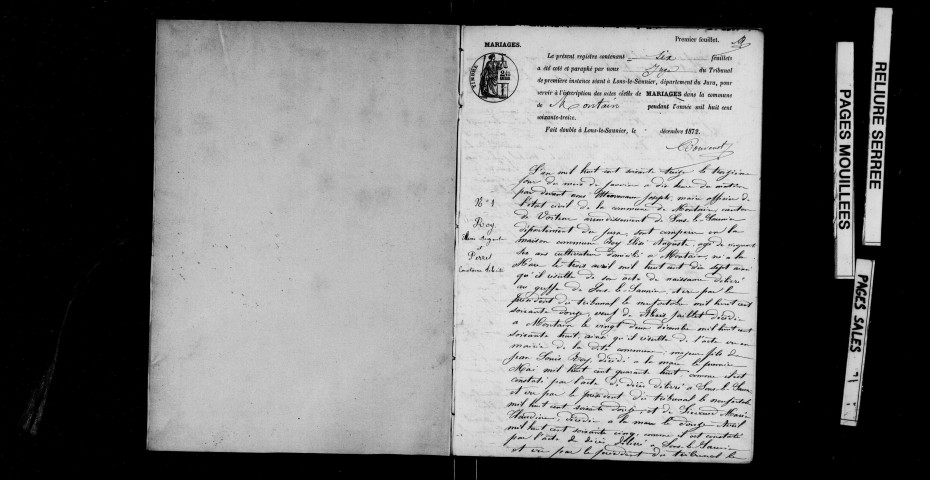 Premier feuillet.
MARIAGES.
Le présent registre contenant six feuillets
a été coté et paraphé par nous Juge du Tribunal
de première instance séant à Lons-le-Saunier, département du Jura, pour
servir à l'inscription des actes civils de MARIAGES dans la commune
de Montain pendant l'année mil huit cent
soixante-treize.
Fait double à Lons-le-Saunier, le décembre 1872.
TIMBRE
L'an mil huit cent soixante treize le treizième
jour du mois de janvier a dix heures du matin
par devant nous Joseph, maire officier de
l'état civil de la commune de Montain, canton
de Voiteur arrondissement de Lons-le-Saunier
département du Jura, sont comparu en la
maison commune Roy Elise Auguste, agé de cinquante
six ans cultivateur domicilié a Montain, né a la
Marre le trois avril mil huit cent dix sept ainsi
qu'il résulte de son acte de naissance délivré
au greffe de Lons-le-Saunier, et vu par le
président du tribunal le neuf octobre mil huit cent
soixante douze, veuf de Jaillet décédée
a Montain le vingt deux décembre mil huit cent
soixante huit, ainsi qu'il résulte de l'acte vu en
mairie de la dite commune; majeur fils de
Jean Louis Roy, décédé a la marre le premier
Mai mil huit cent quarante huit comme il est
constaté par l'acte de décès délivré a Lons-le-Saunier
et vu par le président du tribunal le neuf octobre
mil huit cent soixante douze, et de Marie
Claudine, décédée a la marre le douze Avril
mil huit cent soixante cinq, comme il est constaté
par l'acte de décès délivré a Lons-le-Saunier
et vu par le président du tribunal le
N° 1
Roy
Elise Auguste
et
Perret
Constance
RELIURE SERREE
PAGES MOUILLEES
PAGES SALES